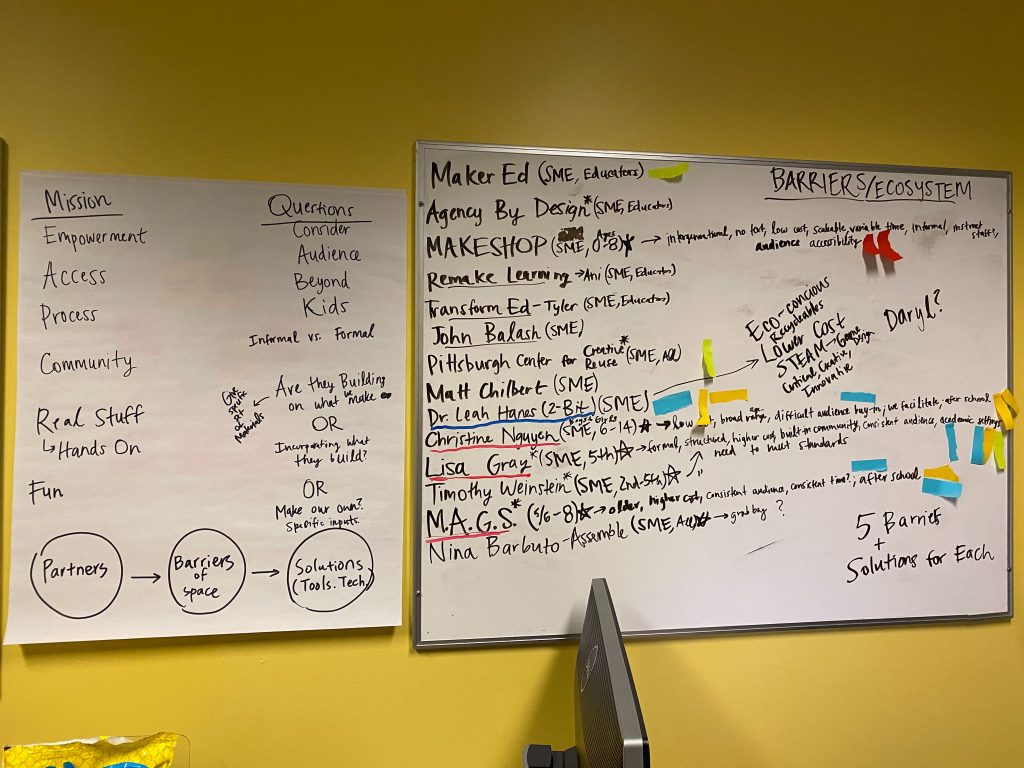 Mission
Empowerment
Access
Process
Community
Real Stuff
↳Hands On
Fun
Questions
Consider
Audience
Beyond
Kids
Informal vs. Formal
Are they Building
on what we make
OR
Incorporating what
they build?
OR
Make our own?
Specific inputs
Give
specific
Materials
Partners → Barriers of space → Solutions (Tools. Tech.)
BARRIERS/ECOSYSTEM
Maker Ed (SME, Educators)
Agency By Design* (SME, Educators)
MAKESHOP (SME, Ages 0-8)* → intergenerational, no text, low cost, scalable, variable time, informal, instruct staff?,
audience accessibility
Remake Learning → Ani (SME, Educators)
Transform Ed - Tyler (SME, Educators)
John Balash (SME)
Pittsburgh Center for Creative Reuse* (SME, All)
Matt Chilbert (SME)
Dr. Leah Hanes (2-Bit) (SME)
Eco-concious
Recycleables
Lower Cost
STEAM → Game Design
Critical, Creative,
Innovative
Daryl?
Christine Nguyen (SME, 6-14)☆ → low cost, broad range, difficult audience buy-in; we facilitate, after school
Lisa Gray* (SME, 5th)☆ → formal, structured, higher cost, built-in community, consistent audience, academic settings
need to meet standards
Timothy Weinstein* (SME, 2nd-5th)☆ → "
M.A.G.S.* (5/6-8)☆ → older, higher cost, consistent audience, consistent time?; after school
Nina Barbuto-Assemble (SME, All)☆ → grab bag ?
5 Barries
+
Solutions for Each
DELL